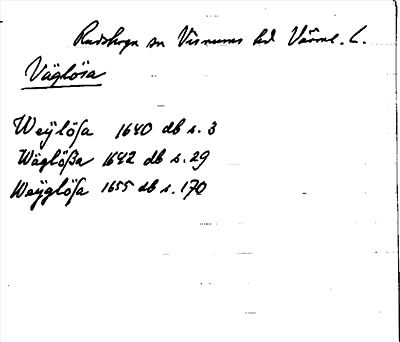 Rudskoga sn Visnums hd Värml. L.
Väglösa
Weÿlösa 1640 db s. 3
Wäglößa 1642 db s. 29
Weÿglösa 1655 db s. 170